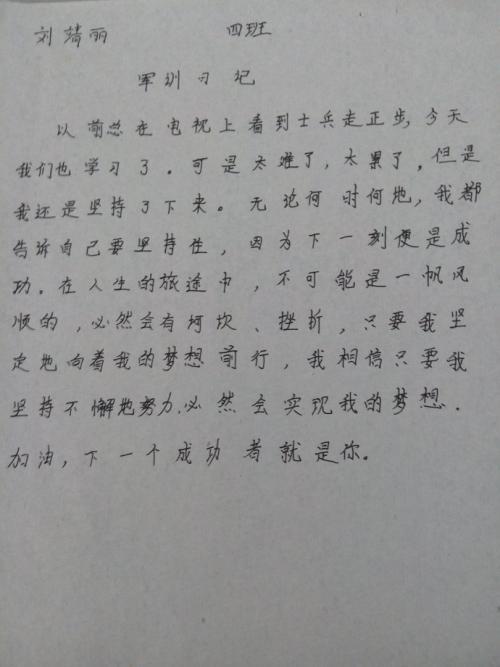 刘靖丽 四班
军训日记
以前总在电视上看到士兵走正步,今天
我们也学习了。可是太难了,太累了,但是
我还是坚持了下来。无论何时何地,我都
告诉自己要坚持住,因为下一刻便是成
功。在人生的旅途中,不可能是一帆风
顺的,必然会有坷坎、挫折,只要我坚
定地向着我的梦想前行,我相信只要我
坚持不懈地努力.必然会实现我的梦想.
加油,下一个成功者就是你。